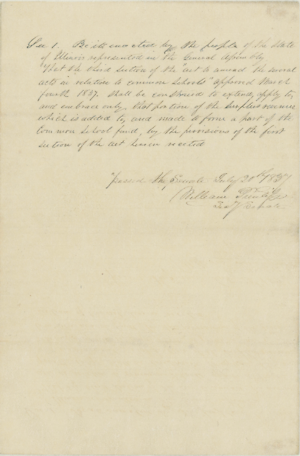 Sec 1. Be it enacted by the people of the State
of Illinois represented in the General Assembly
That the third section of the "act to amend the several
acts in relation to common schools" approved March
fourth 1837. Shall be construed to extend, apply to,
and embrace only, that portion of the Surplus revenue
which is added to, and made to form a part of the
Common School fund, by the provisions of the first
section of the act herein recited
Passed the Senate July 20th 1837
William